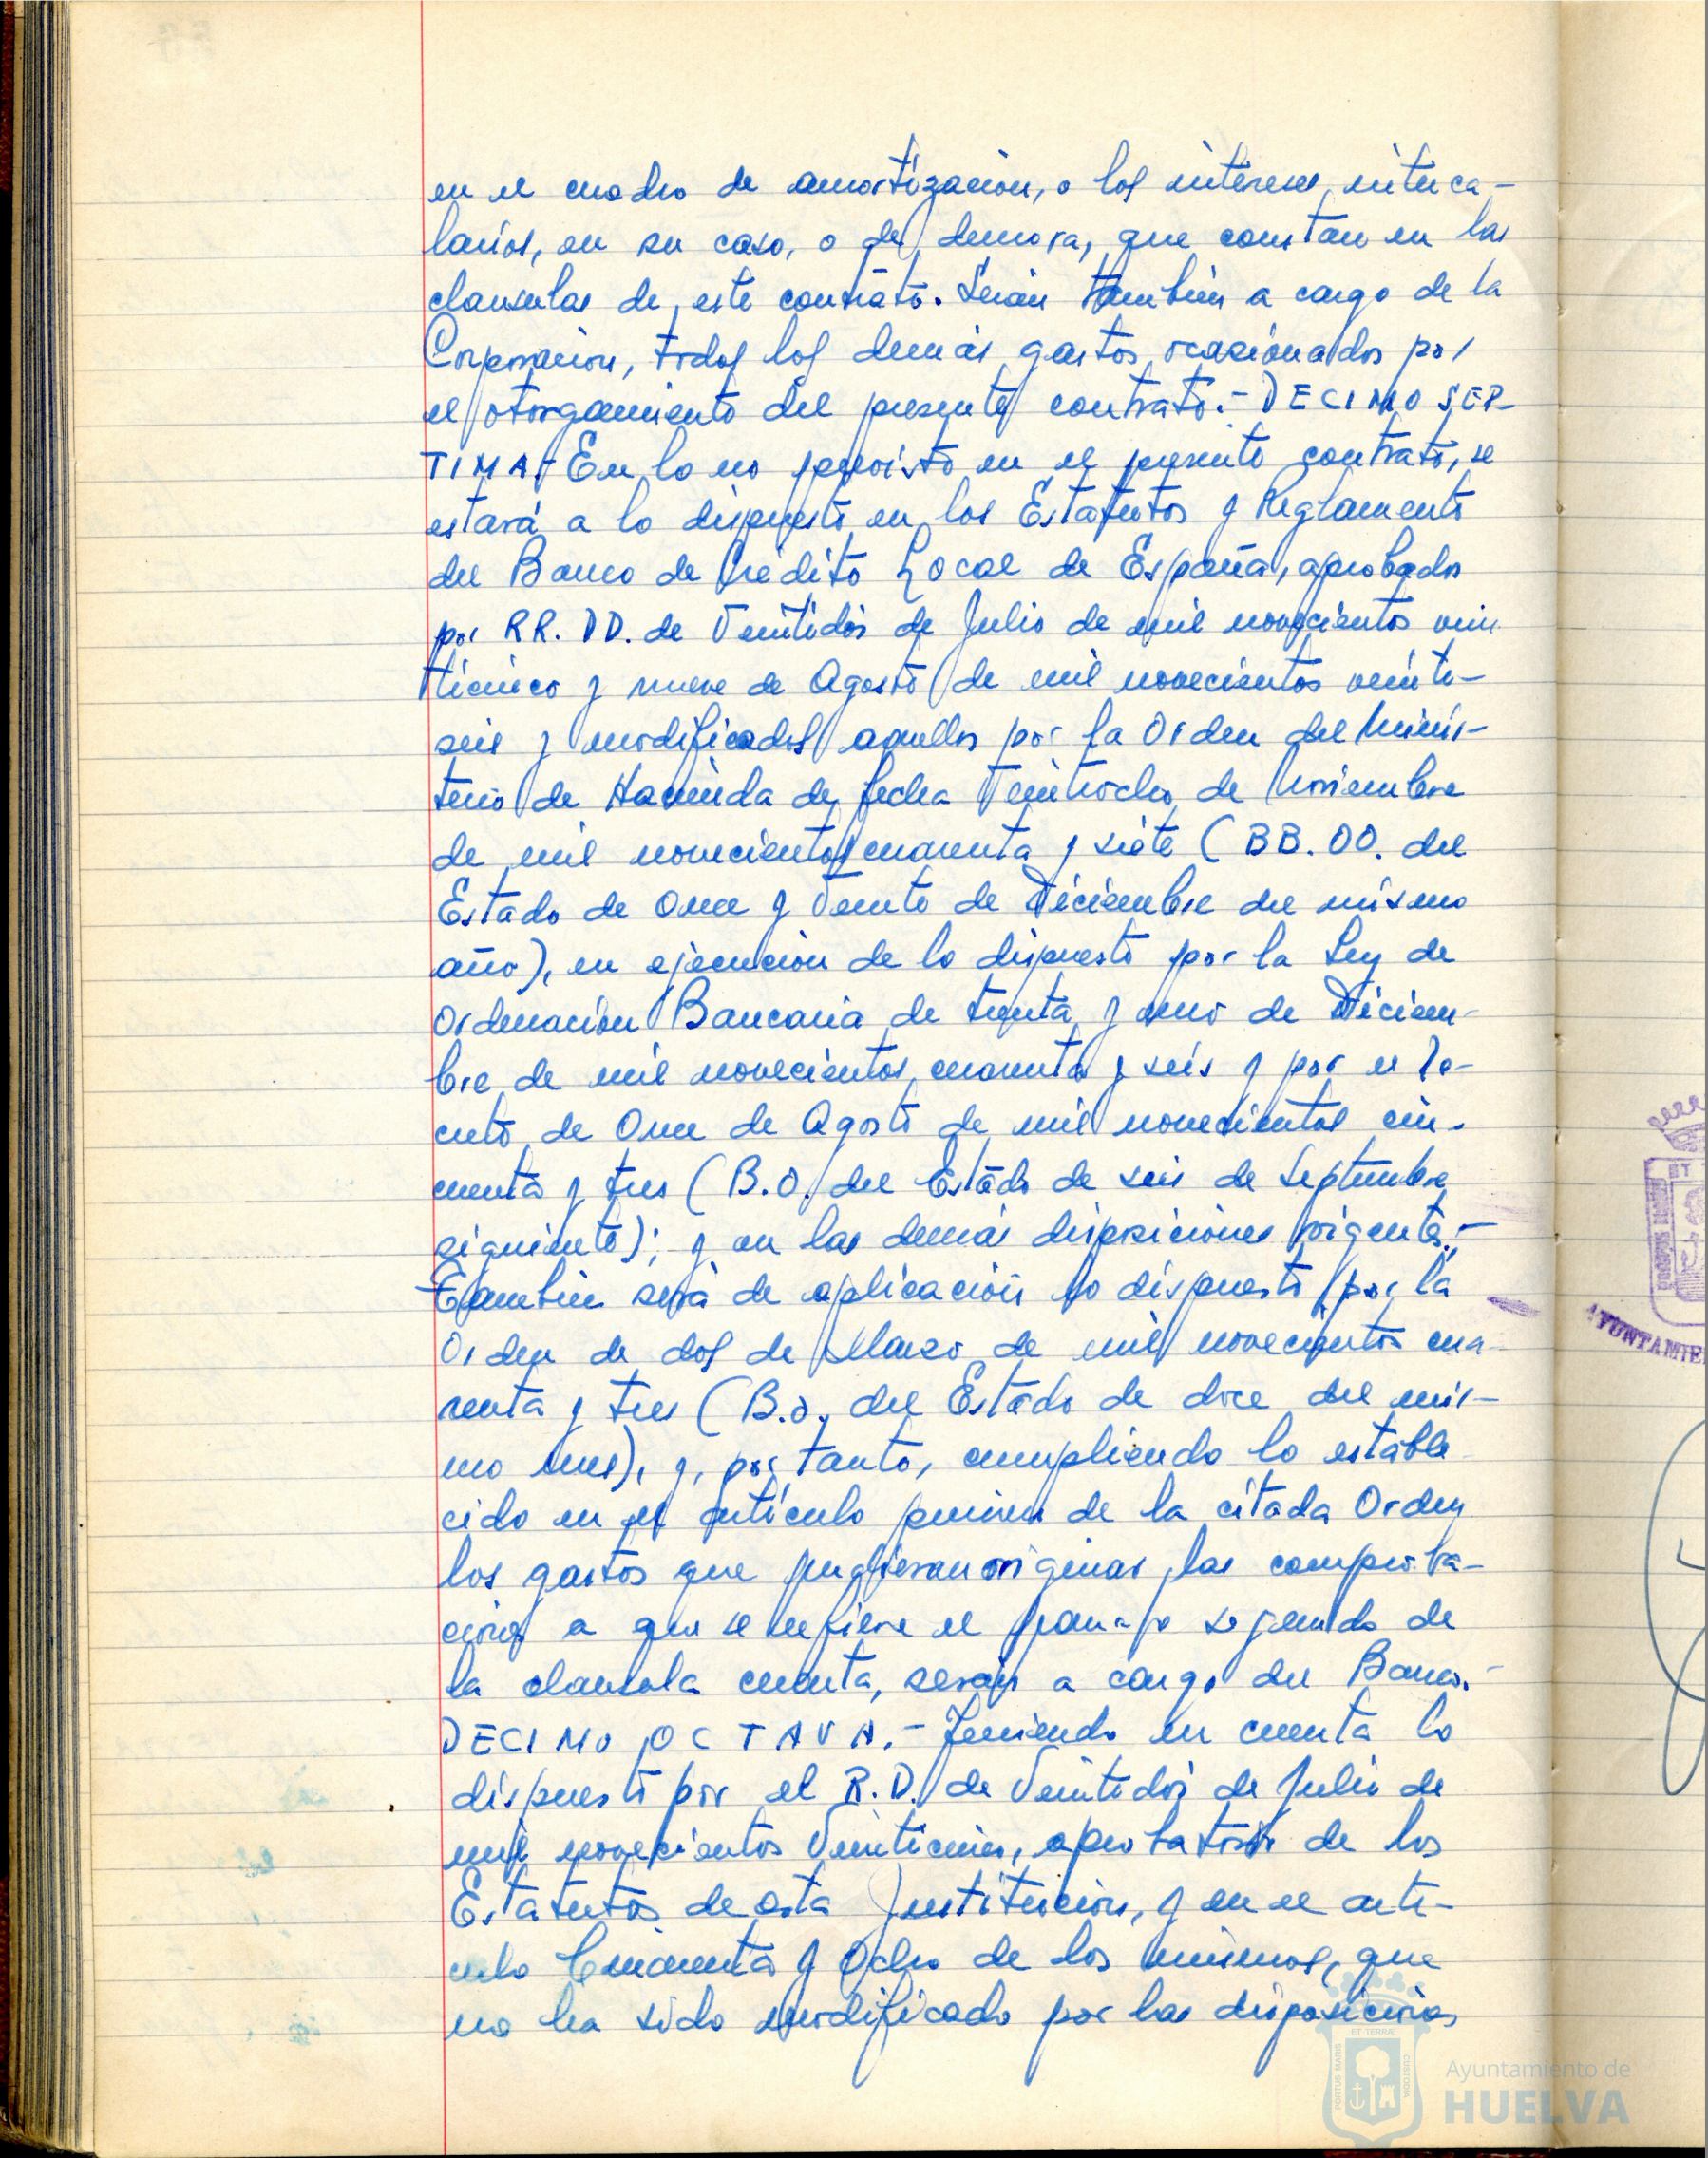 en el cuadro de amortización, o los intereses, interca-
larios, en su caso, o de demora, que constan en las
clausulas de este contrato. Serán tambien a cargo de la
Corporación, todos los demás gastos ocasionados por
el otorgamiento del presente contrato.- DECIMO SEP-
TIMA.- En lo no previsto en el presente contrato, se
estará a lo dispuesto en los Estatutos y Reglamento
del Banco de Crédito Local de España, aprobados
por RR. DD. de Veintidós de Julio de mil novecientos vein
ticinco y nueve de Agosto de mil novecientos veinti-
seis y modificados aquellos por la Orden del Minis-
terio de Hacienda de fecha Veintiocho de Noviembre
de mil novecientos cuarenta y siete (BB. OO. del
Estado de Once y Veinte de Diciembre del mismo
año), en ejecución de lo dispuesto por la Ley de
Ordenación Bancaria de treinta y uno de Diciem-
bre de mil novecientos cuarenta y seis y por el De-
creto de Once de Agosto de mil novecientos cin-
cuenta y tres (B.O. del Estado de seis de Septiembre
siguiente); y en las demás disposiciones vigentes.-
Tambien será de aplicación lo dispuesto por la
Orden de dos de Marzo de mil novecientos cua-
renta y tres (B.O. del Estado de doce del mis-
mo mes), y, por tanto, cumpliendo lo estable
cido en el artículo primero de la citada Orden
los gastos que pudieran originar las comproba-
ciones a que se refiere el parrafo segundo de
la clausula cuarta, serán a cargo del Banco.-
DECIMO OCTAVA.- Teniendo en cuenta lo
dispuesto por el R.D. de Veintidós de Julio de
mil novecientos Veinticinco, aprobatorio de los
Estatutos de esta Institución, y en el artí-
culo Cincuenta y Ocho de los mismos, que
no ha sido modificado por las disposiciones
AYUNTAMIE
ET TERRAE
PORTUS MARIS
CUSTODIA
Ayuntamiento de
HUELVA